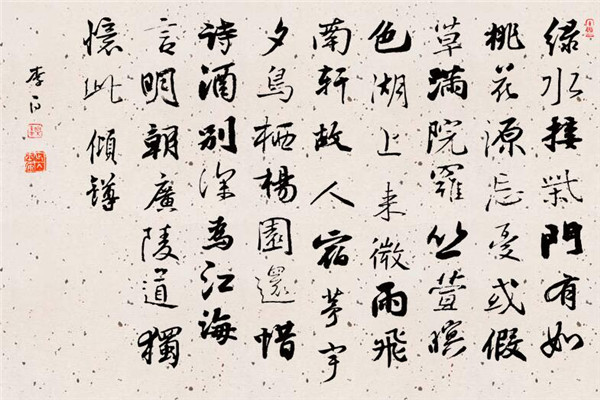 绿水接柴門有如
桃花源忘憂或假
草滿院羅丛萱暝
色湖上来微雨飛
南軒故人宿茅宇
夕鳥栖楊園還惜
诗酒别深為江海
言明朝廣陵道獨
憶此傾鐏
李白